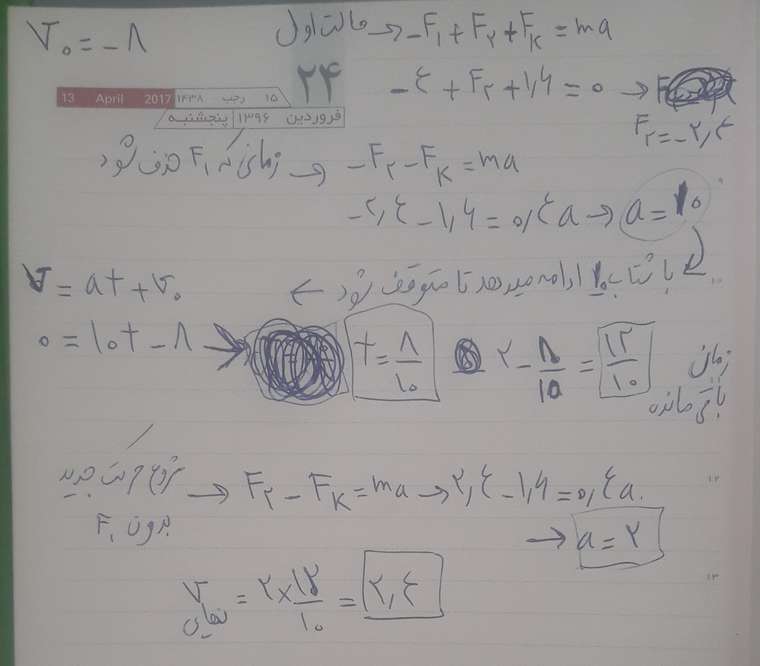 V₀ = -۸
حالت اول → -F₁ + F₂ + Fₖ = ma
۲۴
13 April 2017 ۱۴۳۸ رجب ۱۵
فروردین ۱۳۹۶ پنجشنبه
-٤ + F₂ + ۱,۶ = ۰ →
F₂ = -۲,٤
زمانی که F₁ حذف شود → -F₂ - Fₖ = ma
-۲,٤ - ۱,۶ = ۰,٤a → a = ۱۰
با شتاب ۱۰ ادامه میدهد تا متوقف شود ←
V = at + v₀
۰ = ۱۰t - ۸ → t = ۸/۱۰
۲ - ۸/۱۰ = ۱۲/۱۰
زمان باقی مانده
شروع حرکت جدید بدون F₁ → F₂ - Fₖ = ma → ۲,٤ - ۱,۶ = ۰,٤a.
→ a = ۲
V نهایی = ۲ × ۱۲/۱۰ = ۲,٤
۱۲
۱۳